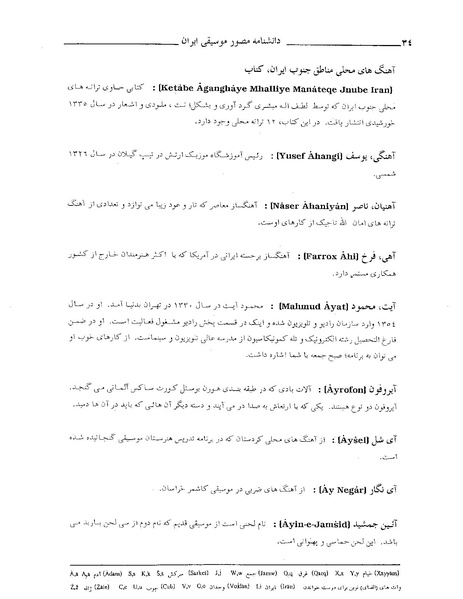 دانشنامه مصور موسیقی ایران
٣٤
آهنگ های محلی مناطق جنوب ایران، کتاب
[Ketâbe Âganghâye Mhalliye Manâteqe Jnube Iran] : کتابی حاوی ترانه های
محلی جنوب ایران که توسط لطف اله مبشری گرد آوری و بشکل نت ، ملودی و اشعار در سال ١٣٣٥
خورشیدی انتشار یافت. در این کتاب، ١٢ ترانه محلی وجود دارد.
آهنگی، یوسف [Yusef Âhangi] : رئیس آموزشگاه موزیک ارتش در تیپ گیلان در سال ١٣٢٦
شمسی.
آهنیان، ناصر [Nâser Âhaniyân] : آهنگساز معاصر که تار و عود زیبا می نوازد و تعدادی از آهنگ
ترانه های امان الله تاجیک از کارهای اوست.
آهی، فرخ [Farrox Âhi] : آهنگساز برجسته ایرانی در آمریکا که با اکثر هنرمندان خارج از کشور
همکاری مستمر دارد.
آیت، محمود [Mahmud Âyat] : محمود آیت در سال ١٣٣٠ در تهران بدنیا آمد. او در سال
١٣٥٤ وارد سازمان رادیو و تلویزیون شده و اینک در قسمت پخش رادیو مشغول فعالیت است. او در ضمن
فارغ التحصیل رشته الکترونیک و تله کمونیکاسیون از مدرسه عالی تلویزیون و سینماست. از کارهای خوب او
می توان به برنامه؛ صبح جمعه با شما اشاره داشت.
آیروفون [Âyrofon] : آلات بادی که در طبقه بندی هورن بوستل کورت ساکس آلمانی می گنجد.
آیروفون دو نوع هستند. یکی که با ارتعاش به صدا در می آیند و دسته دیگر آن هائی که باید در آن ها دمید.
آی شل [Âyŝel] : از آهنگ های محلی کردستان که در برنامه تدریس هنرستان موسیقی گنجانیده شده
است.
آی نگار [Ây Negâr] : از آهنگ های ضربی در موسیقی کاشمر خراسان.
آئین جمشید [Âyin-e-Jamŝid] : نام لحنی است از موسیقی قدیم که نام دوم از سی لحن باربد می
باشد. این لحن حماسی و پهلوانی است.